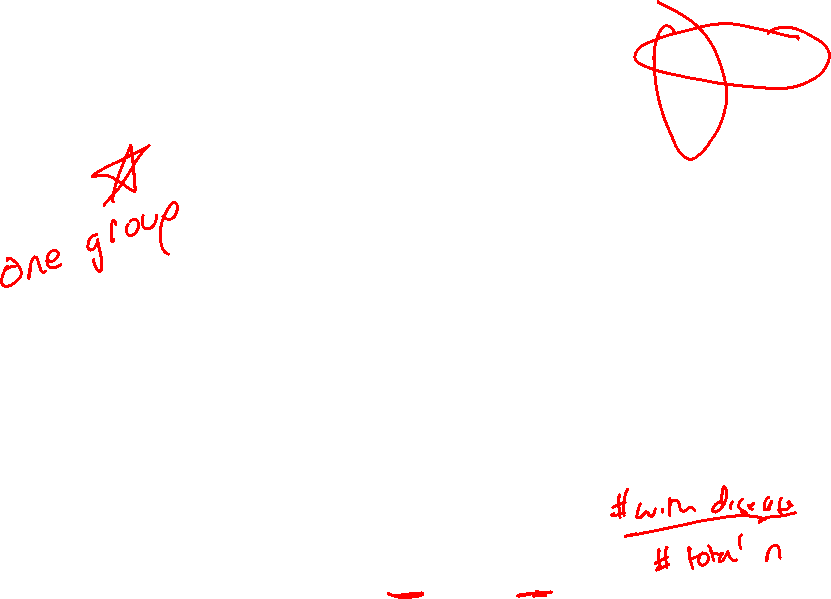 one group
#with disease
# total n